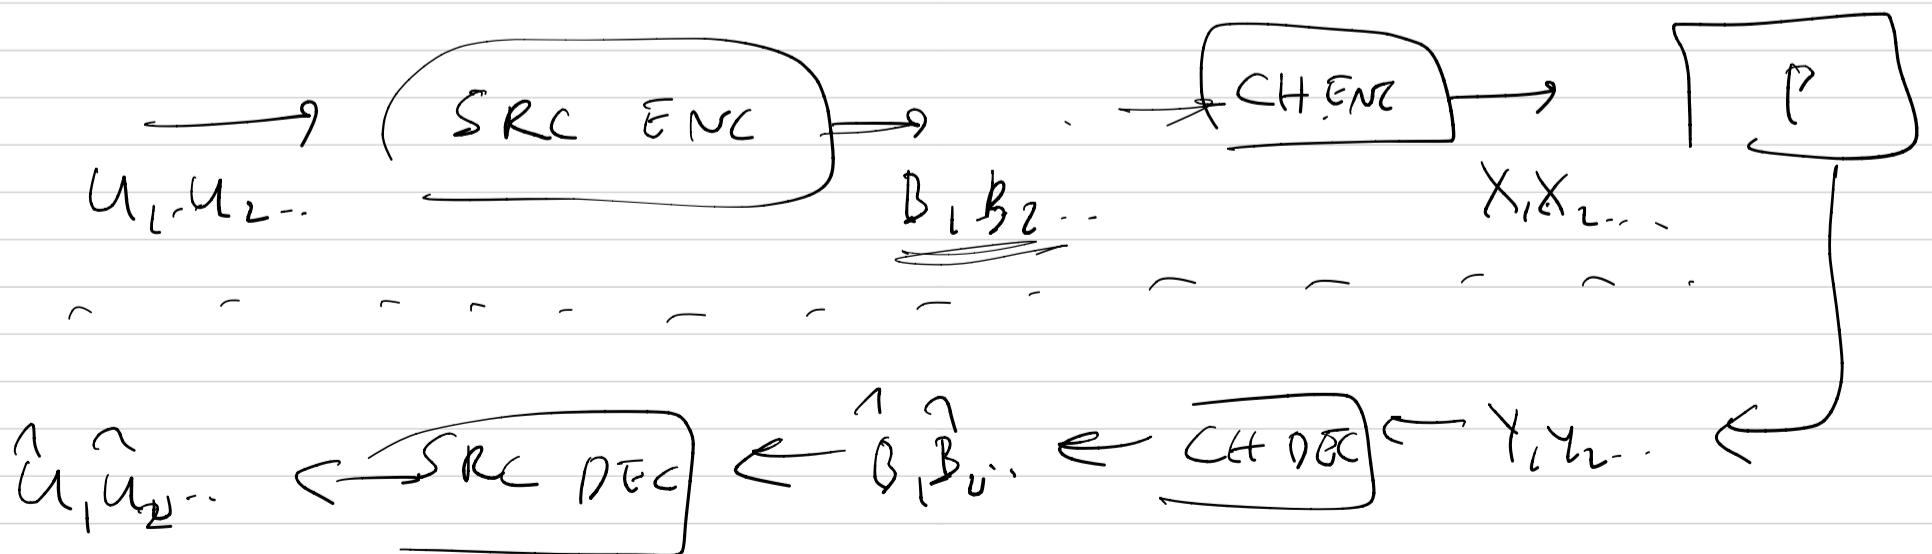 SRC ENC
CH.ENC
P
U₁.U₂...
B₁B₂...
X₁X₂...
Û₁Û₂...
SRC DEC
B̂₁B̂₂...
CH DEC
Y₁Y₂...